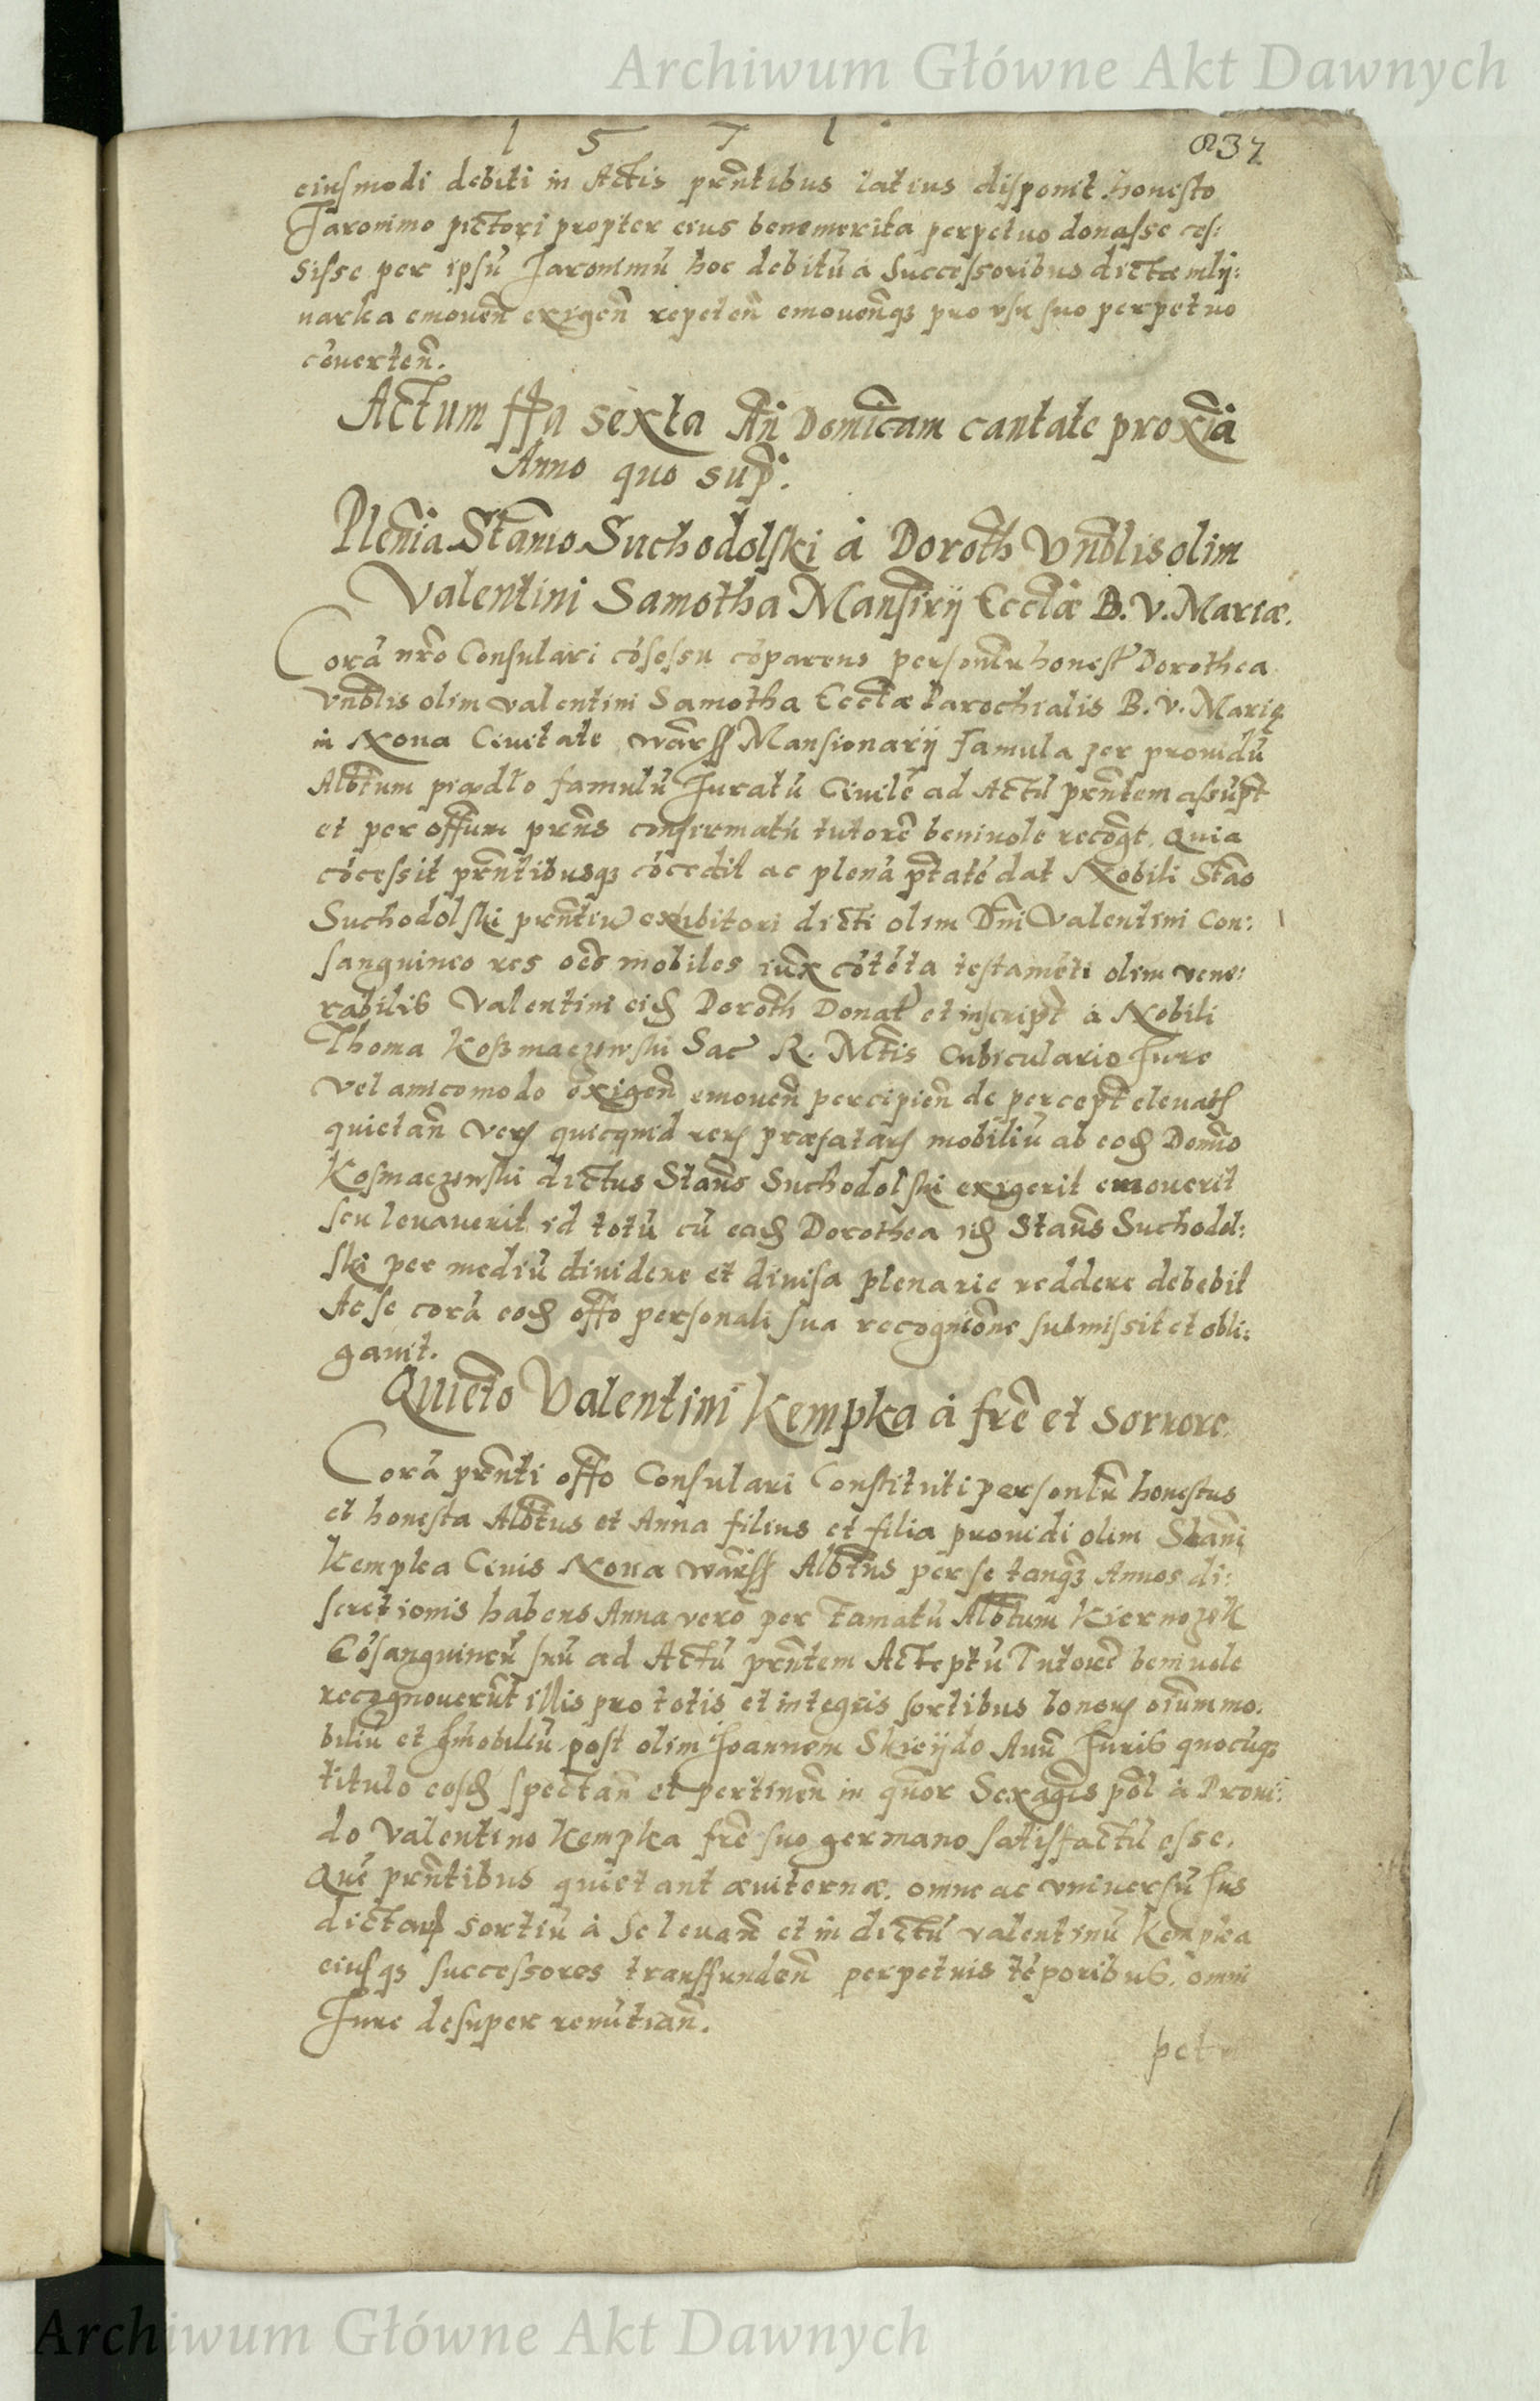 Archiwum Główne Akt Dawnych
1 5 7 1
837
eiusmodi debiti in Actis prñtibus latius disponit. honesto
Jaronimo pictori propter eius benemerita perpetuo donasse ces:
sisse per ipsũ Jaronimũ hoc debitũ à Successoribus dictæ mlÿ:
narka emoueñ exigeñ repeteñ emoueñq3 pro vsu suo perpetuo
cõuerteñ.
Actum ffa sexta Añ Domĩcam cantate proxĩa
Anno quo sup̃.
Pleñia Stañio Suchodolski à Doroth Vnõblis olim
Valentini Samotha Mansirÿ Eccłæ B. V. Mariæ.
Corã nr̃o Consulari cõsessu cõparens personłr honest Dorothea
Vnõblis olim Valentini Samotha Eccłæ Parochialis B. V. Marię
in Noua Ciuitate warss Mansionarÿ famula per prouidũ
Albtum prædło famulũ Juratũ Ciuilẽ ad Actũ prñtem assũpt
et per offũm prñs confirmatũ tutorẽ beniuole recõgt. Quia
cõcessit prñtibusq3 cõcedit ac plenã p̃tatẽ dat Nobili Stão
Suchodolski prñtiũ exhibitori dicti olim Dñi Valentini Con:
sanguineo res oẽs mobiles iux cõtẽta testamẽti olim vene:
rabilis Valentini eid Doroth Donat et inscript à Nobili
Thoma Kosmaczewski Sac R. Mtis Cubiculario Jure
vel amicomodo exigeñ emoueñ percipieñ de percept eleuatis
quietañ Verum quicquid rerum præfatarum mobiliũ ab eod Domĩo
Kosmaczewski dictus Stañs Suchodolski exigerit emouerit
seu leuauerit id totũ cũ ead Dorothea id Stañs Suchodol:
ski per mediũ diuidere et diuisa plenarie reddere debebit
Ac se corã eod offo personali sua recognicõne submissit et obli:
gauit.
Quieto Valentini Kempka à frẽ et sorrore
Corã prñti offo Consulari Constituti personłr honestus
et honesta Albtus et Anna filius et filia prouidi olim Stañi
Kempka Ciuis Noua warss Albtus per se tanq3 Annos di:
scretionis habens Anna vero per famatũ Albtum Kiernozek
Cõsanguineũ suũ ad Actũ prñtem Acceptũ Tutorẽ beniuole
recognouerũt illis pro totis et integris sortibus bonorum oĩum mo:
biliũ et Jm̃obiliũ post olim Joannem Skieÿdo Auũ Juris quocũq3
titulo eosd spectañ et pertineñ in quor Sexagẽis põl à Proui:
do Valentino Kempka frẽ suo germano satisfactũ esse.
Quẽ prñtibus quietant æuiternæ. omne ac vniuersũ Jus
dictarum sortiũ à se leuañ et in dictũ Valentinũ Kempka
eiusq3 successores transfundeñ perpetuis tẽporibus. omni
Jure desuper renũtiañ.
petr
Archiwum Główne Akt Dawnych